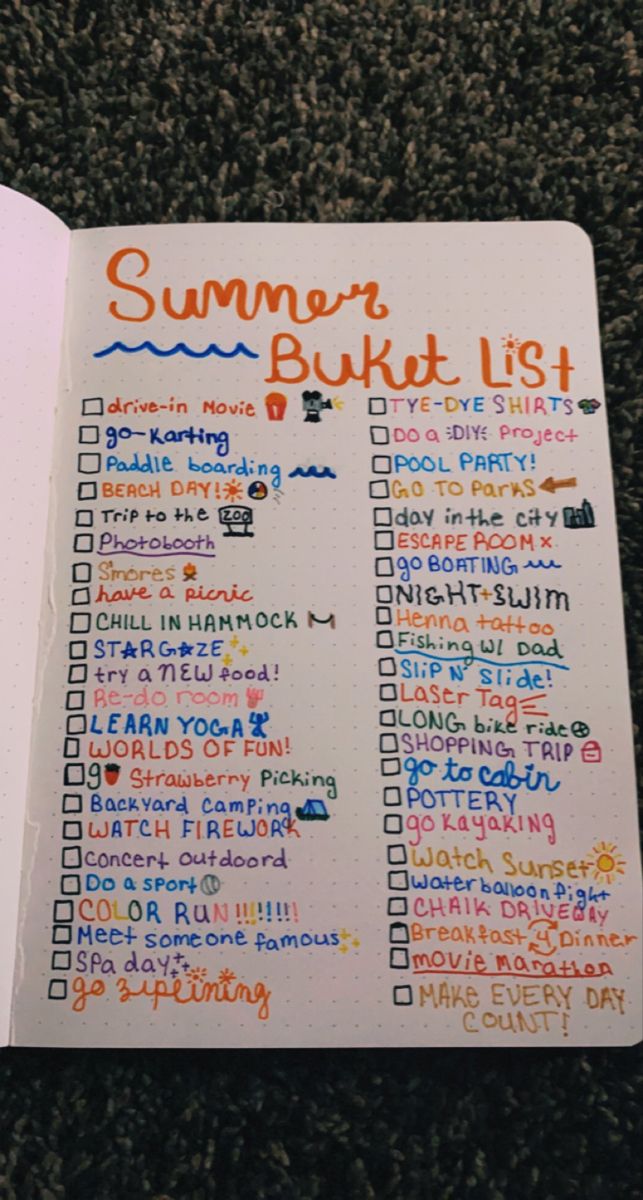 Summer
Buket List
drive-in Movie
go-karting
Paddle boarding
BEACH DAY!
Trip to the ZOO
Photobooth
S'mores
have a picnic
CHILL IN HAMMOCK
STARGAZE
try a NEW food!
Re-do room
LEARN YOGA
WORLDS OF FUN!
go Strawberry Picking
Backyard Camping
WATCH FIREWORK
concert outdoord
Do a sport
COLOR RUN !!!!!!!!
Meet someone famous
Spa day
go ziplining
TYE-DYE SHIRTS
DO a DIY Project
POOL PARTY!
GO TO Parks
day in the city
ESCAPE ROOM x
go BOATING
NIGHT SWIM
Henna tattoo
Fishing W/ Dad
SliP N' Slide!
Laser Tag
LONG bike ride
SHOPPING TRIP
go to cabin
POTTERY
go kayaking
Watch Sunset
water balloon fight
CHALK DRIVEWAY
Breakfast 4 Dinner
movie marathon
MAKE EVERY DAY
COUNT!